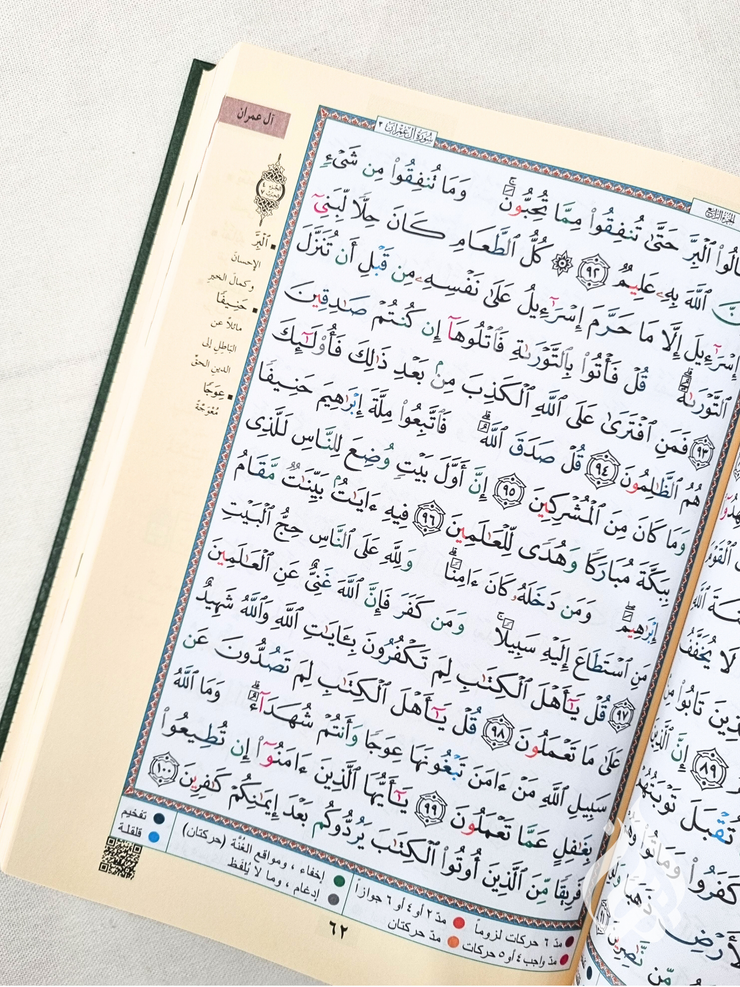 آل عمران
سُورَةُ آلِ عِمْرَانَ ٣
ٱلْبِرَّ حَتَّىٰ تُنفِقُوا۟ مِمَّا تُحِبُّونَ وَمَا تُنفِقُوا۟ مِن شَىْءٍ
ٱللَّهَ بِهِۦ عَلِيمٌ ٩٢ كُلُّ ٱلطَّعَامِ كَانَ حِلًّا لِّبَنِىٓ
إِسْرَٰٓءِيلَ إِلَّا مَا حَرَّمَ إِسْرَٰٓءِيلُ عَلَىٰ نَفْسِهِۦ مِن قَبْلِ أَن تُنَزَّلَ
ٱلتَّوْرَىٰةُ قُلْ فَأْتُوا۟ بِٱلتَّوْرَىٰةِ فَٱتْلُوهَآ إِن كُنتُمْ صَـٰدِقِينَ
٩٣ فَمَنِ ٱفْتَرَىٰ عَلَى ٱللَّهِ ٱلْكَذِبَ مِنۢ بَعْدِ ذَٰلِكَ فَأُو۟لَـٰٓئِكَ
هُمُ ٱلظَّـٰلِمُونَ ٩٤ قُلْ صَدَقَ ٱللَّهُ فَٱتَّبِعُوا۟ مِلَّةَ إِبْرَٰهِيمَ حَنِيفًا
وَمَا كَانَ مِنَ ٱلْمُشْرِكِينَ ٩٥ إِنَّ أَوَّلَ بَيْتٍ وُضِعَ لِلنَّاسِ لَلَّذِى
بِبَكَّةَ مُبَارَكًا وَهُدًى لِّلْعَـٰلَمِينَ ٩٦ فِيهِ ءَايَـٰتٌۢ بَيِّنَـٰتٌ مَّقَامُ
إِبْرَٰهِيمَ وَمَن دَخَلَهُۥ كَانَ ءَامِنًا وَلِلَّهِ عَلَى ٱلنَّاسِ حِجُّ ٱلْبَيْتِ
مَنِ ٱسْتَطَاعَ إِلَيْهِ سَبِيلًا وَمَن كَفَرَ فَإِنَّ ٱللَّهَ غَنِىٌّ عَنِ ٱلْعَـٰلَمِينَ
٩٧ قُلْ يَـٰٓأَهْلَ ٱلْكِتَـٰبِ لِمَ تَكْفُرُونَ بِـَٔايَـٰتِ ٱللَّهِ وَٱللَّهُ شَهِيدٌ
عَلَىٰ مَا تَعْمَلُونَ ٩٨ قُلْ يَـٰٓأَهْلَ ٱلْكِتَـٰبِ لِمَ تَصُدُّونَ عَن
سَبِيلِ ٱللَّهِ مَنْ ءَامَنَ تَبْغُونَهَا عِوَجًا وَأَنتُمْ شُهَدَآءُ وَمَا ٱللَّهُ
بِغَـٰفِلٍ عَمَّا تَعْمَلُونَ ٩٩ يَـٰٓأَيُّهَا ٱلَّذِينَ ءَامَنُوٓا۟ إِن تُطِيعُوا۟
فَرِيقًا مِّنَ ٱلَّذِينَ أُوتُوا۟ ٱلْكِتَـٰبَ يَرُدُّوكُم بَعْدَ إِيمَـٰنِكُمْ كَـٰفِرِينَ ١٠٠
ٱلْبِرَّ
الإحسان
وكمال الخير
حَنِيفًا
مائلاً عن
الباطل إلى
الدين الحقّ
عِوَجًا
مُعْوَجّةً
مدّ ٦ حركات لزوماً
مدّ ٢ أو ٤ أو ٦ جوازاً
مدّ واجب ٤ أو ٥ حركات
مدّ حركتان
إخفاء ، ومواقع الغُنَّة (حركتان)
إدغام ، وما لا يُلفظ
تفخيم
قلقلة
٦٢